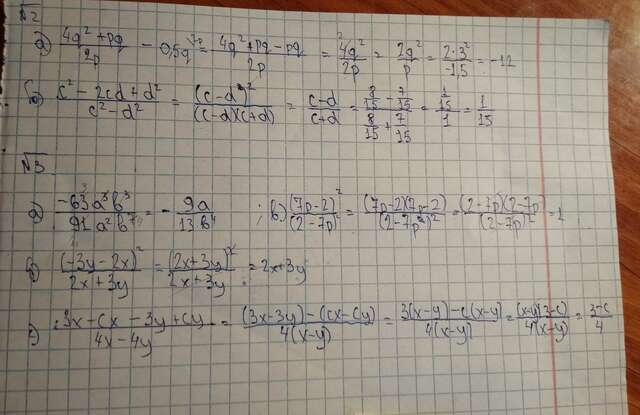 №2
а) (4q² + pq)/2p - 0,5q = (4q² + pq - pq)/2p = 4q²/2p = 2q²/p = 2·3²/-1,5 = -12
б) (c² - 2cd + d²)/(c² - d²) = (c-d)²/((c-d)(c+d)) = (c-d)/(c+d) = (8/15 - 7/15)/(8/15 + 7/15) = (1/15)/1 = 1/15
№3
а) -63a³b³/91a²b⁷ = - 9a/13b⁴ ; б) (7p-2)²/(2-7p)² = (7p-2)(7p-2)/(2-7p)² = (2-7p)(2-7p)/(2-7p)² = 1
в) (-3y-2x)²/(2x+3y) = (2x+3y)²/(2x+3y) = 2x+3y
г) (3x-cx-3y+cy)/(4x-4y) = ((3x-3y)-(cx-cy))/4(x-y) = (3(x-y)-c(x-y))/4(x-y) = (x-y)(3-c)/4(x-y) = (3-c)/4